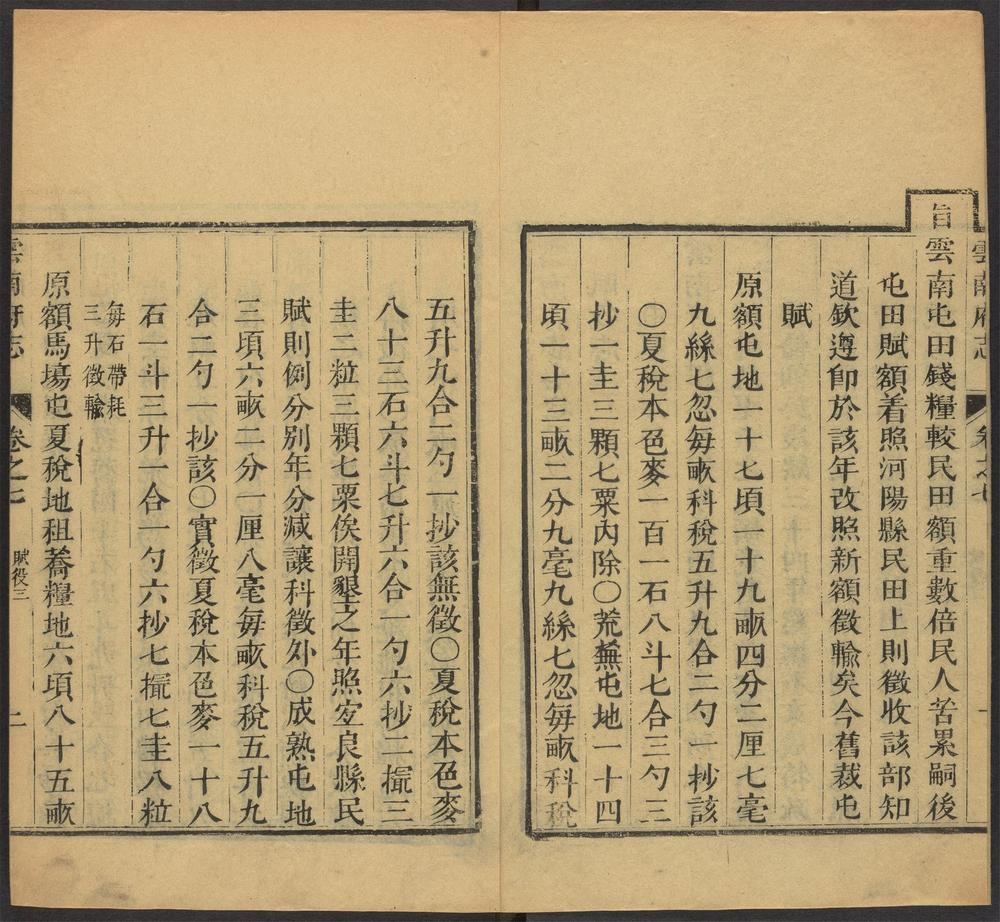 雲南府志
卷之七
旨雲南屯田錢糧較民田額重數倍民人苦累嗣後
屯田賦額着照河陽縣民田上則徵收該部知
道欽遵卽於該年改照新額徵輸矣今舊裁屯
賦
原額屯地一十七頃一十九畝四分二厘七毫
九絲七忽每畝科稅五升九合二勺一抄該
〇夏稅本色麥一百一石八斗七合三勺三
抄一圭三顆七粟內除〇荒蕪屯地一十四
頃一十三畝二分九毫九絲七忽每畝科稅
五升九合二勺一抄該無徵〇夏稅本色麥
八十三石六斗七升六合一勺六抄二撮三
圭二粒三顆七粟俟開墾之年照宜良縣民
賦則例分別年分減讓科徵外〇成熟屯地
三頃六畝二分一厘八毫每畝科稅五升九
合二勺一抄該〇實徵夏稅本色麥一十八
石一斗三升一合一勺六抄七撮七圭八粒
每石帶耗
三升徵輸
原額馬場屯夏稅地租蕎糧地六頃八十五畝
雲南府志
卷之七
賦役三
二